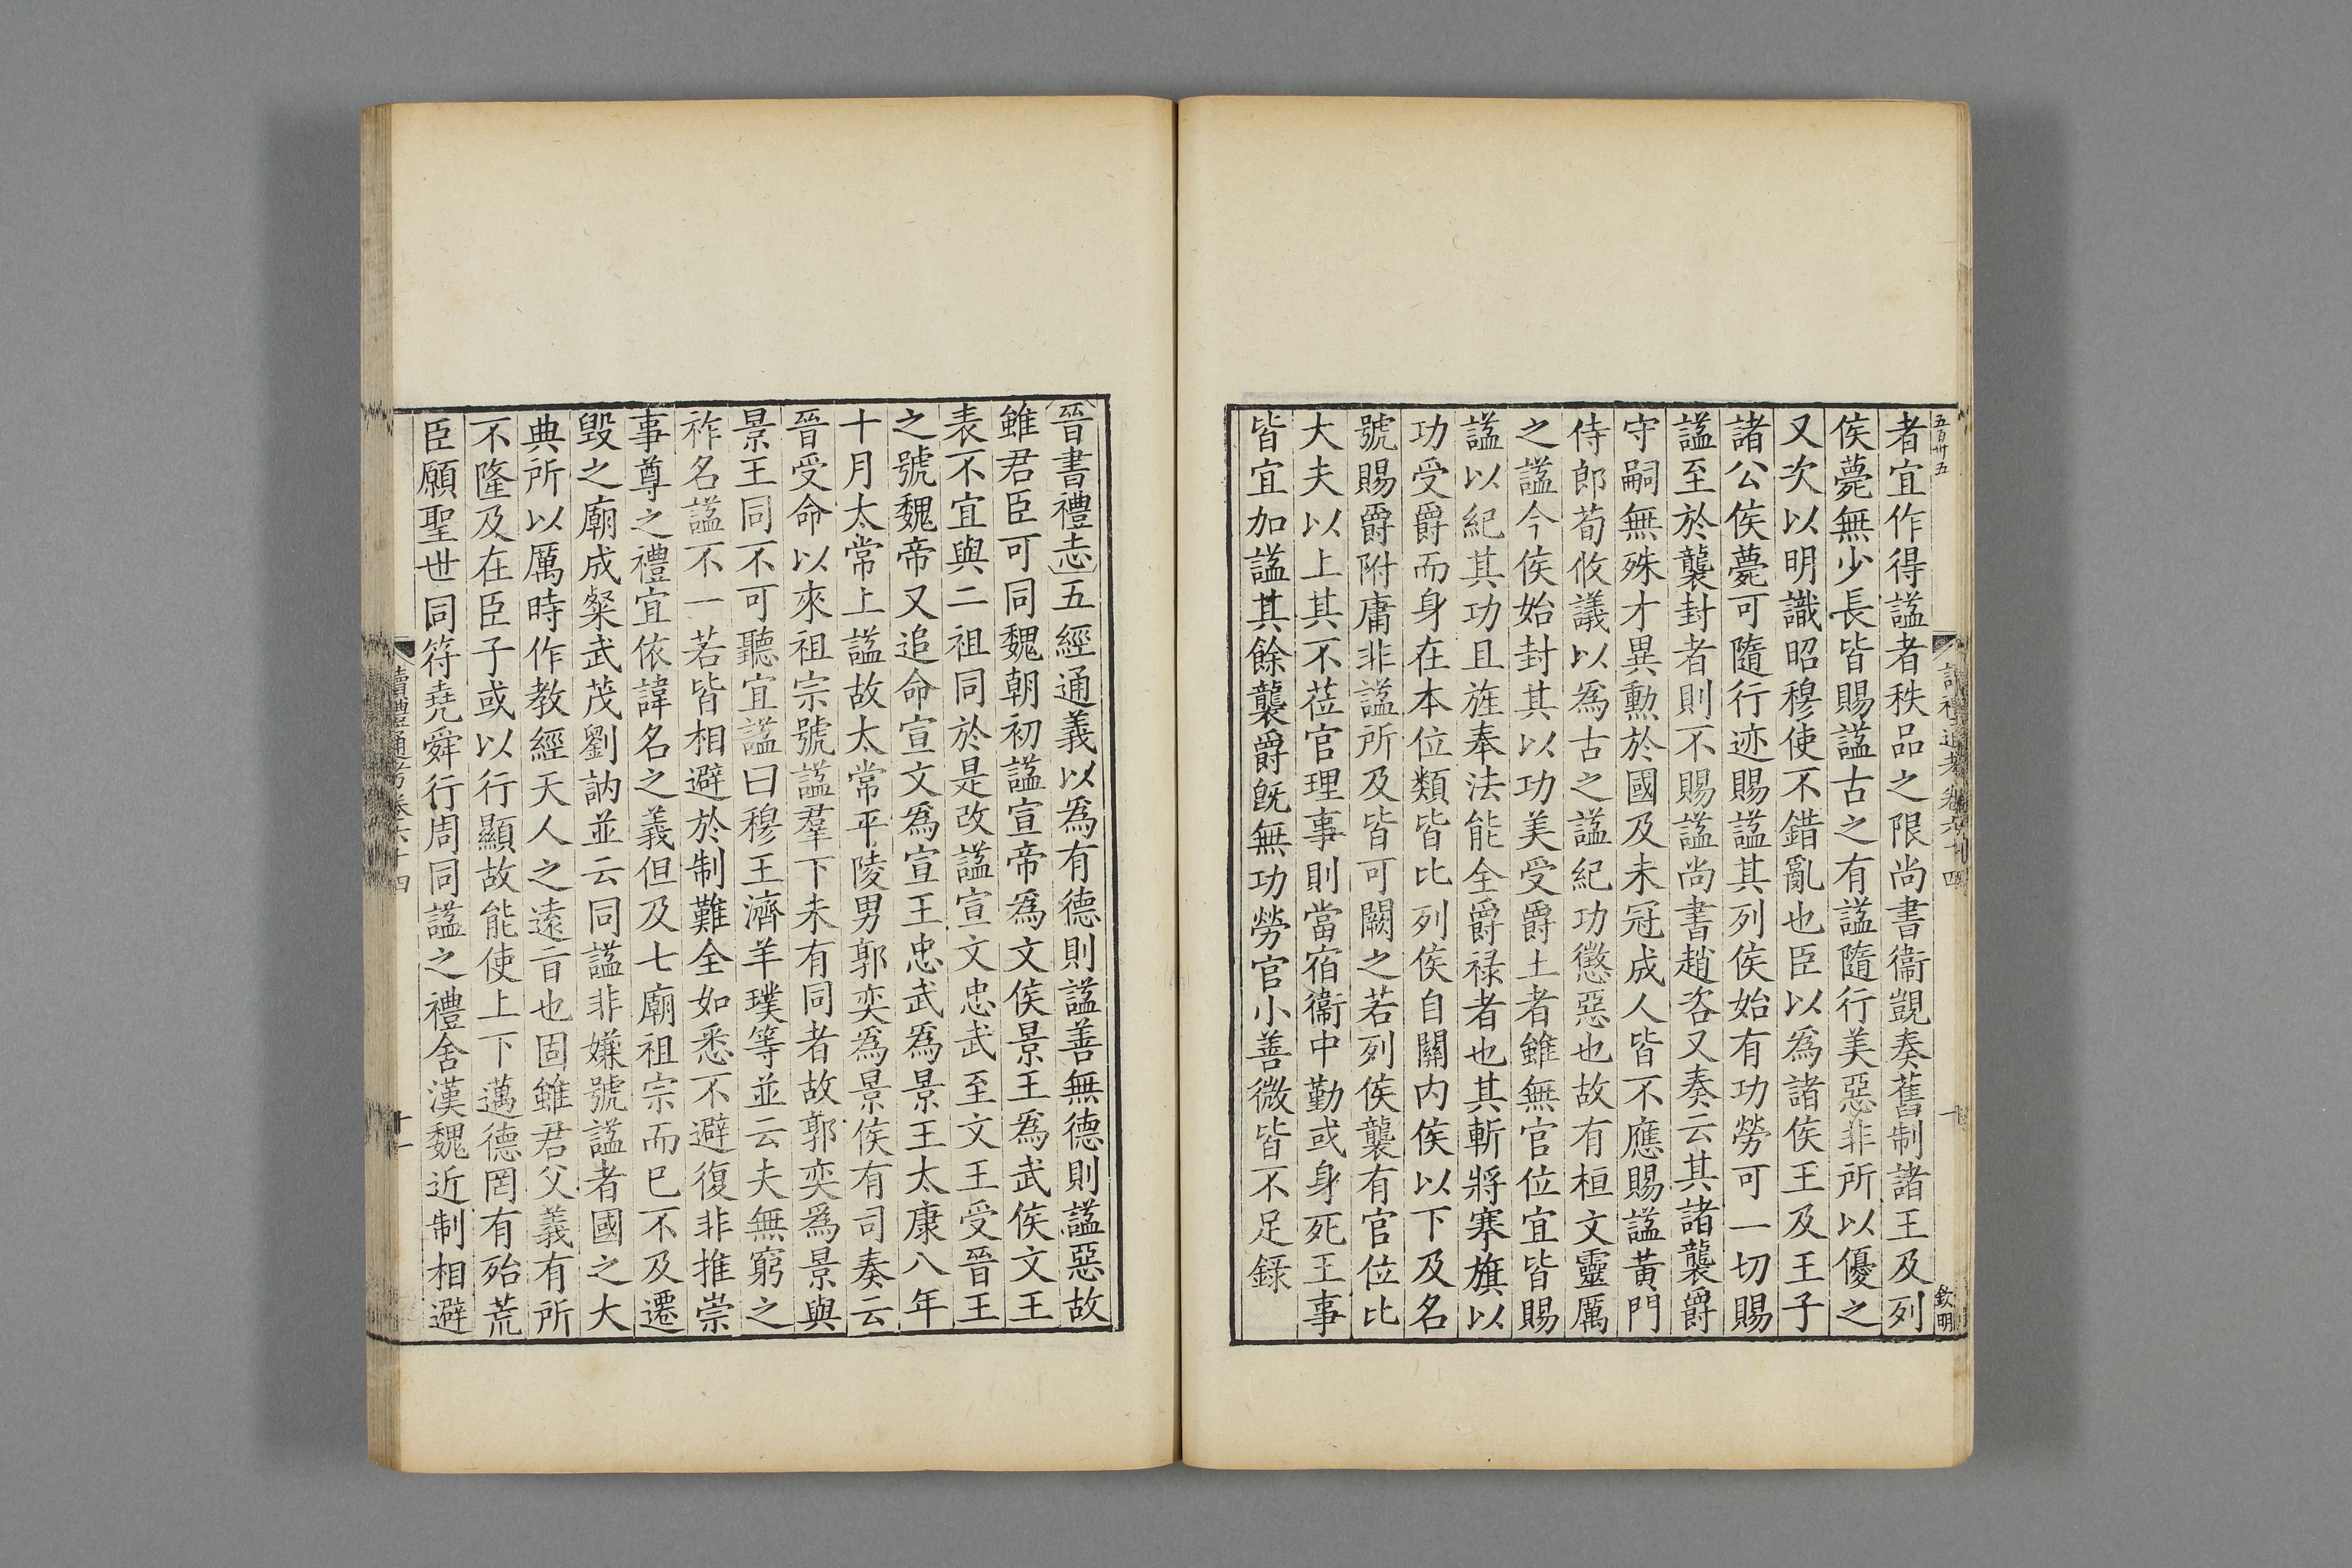 五百卅五
讀禮通考卷六十四
十
欽明
者宜作得諡者秩品之限尚書衞覬奏舊制諸王及列
侯薨無少長皆賜諡古之有諡隨行美惡非所以優之
又次以明識昭穆使不錯亂也臣以爲諸侯王及王子
諸公侯薨可隨行迹賜諡其列侯始有功勞可一切賜
諡至於襲封者則不賜諡尚書趙咨又奏云其諸襲爵
守嗣無殊才異勲於國及未冠成人皆不應賜諡黃門
侍郎荀攸議以爲古之諡紀功懲惡也故有桓文靈厲
之諡今侯始封其以功美受爵土者雖無官位宜皆賜
諡以紀其功且旌奉法能全爵祿者也其斬將搴旗以
功受爵而身在本位類皆比列侯自關内侯以下及名
號賜爵附庸非諡所及皆可闕之若列侯襲有官位比
大夫以上其不莅官理事則當宿衞中勤或身死王事
皆宜加諡其餘襲爵旣無功勞官小善微皆不足錄
晉書禮志五經通義以爲有德則諡善無德則諡惡故
雖君臣可同魏朝初諡宣帝爲文侯景王爲武侯文王
表不宜與二祖同於是改諡宣文忠武至文王受晉王
之號魏帝又追命宣文爲宣王忠武爲景王太康八年
十月太常上諡故太常平陵男郭奕爲景侯有司奏云
晉受命以來祖宗號諡羣下未有同者故郭奕爲景與
景王同不可聽宜諡曰穆王濟羊璞等並云夫無窮之
祚名諡不一若皆相避於制難全如悉不避復非推崇
事尊之禮宜依諱名之義但及七廟祖宗而已不及遷
毀之廟成粲武茂劉訥並云同諡非嫌號諡者國之大
典所以厲時作教經天人之遠旨也固雖君父義有所
不隆及在臣子或以行顯故能使上下邁德罔有殆荒
臣願聖世同符堯舜行周同諡之禮舍漢魏近制相避
讀禮通考卷六十四
十一